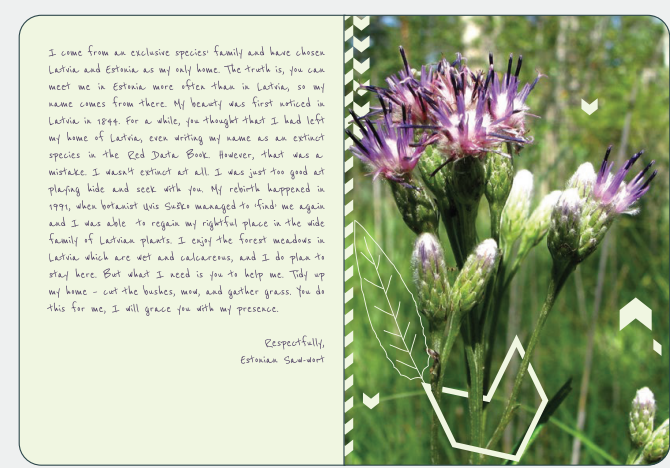 I come from an exclusive species' family and have chosen
Latvia and Estonia as my only home. The truth is, you can
meet me in Estonia more often than in Latvia, so my
name comes from there. My beauty was first noticed in
Latvia in 1844. For a while, you thought that I had left
my home of Latvia, even writing my name as an extinct
species in the Red Data Book. However, that was a
mistake. I wasn't extinct at all. I was just too good at
playing hide and seek with you. My rebirth happened in
1991, when botanist Uvis Suško managed to 'find' me again
and I was able to regain my rightful place in the wide
family of Latvian plants. I enjoy the forest meadows in
Latvia which are wet and calcareous, and I do plan to
stay here. But what I need is you to help me. Tidy up
my home – cut the bushes, mow, and gather grass. You do
this for me, I will grace you with my presence.
Respectfully,
Estonian Saw-wort